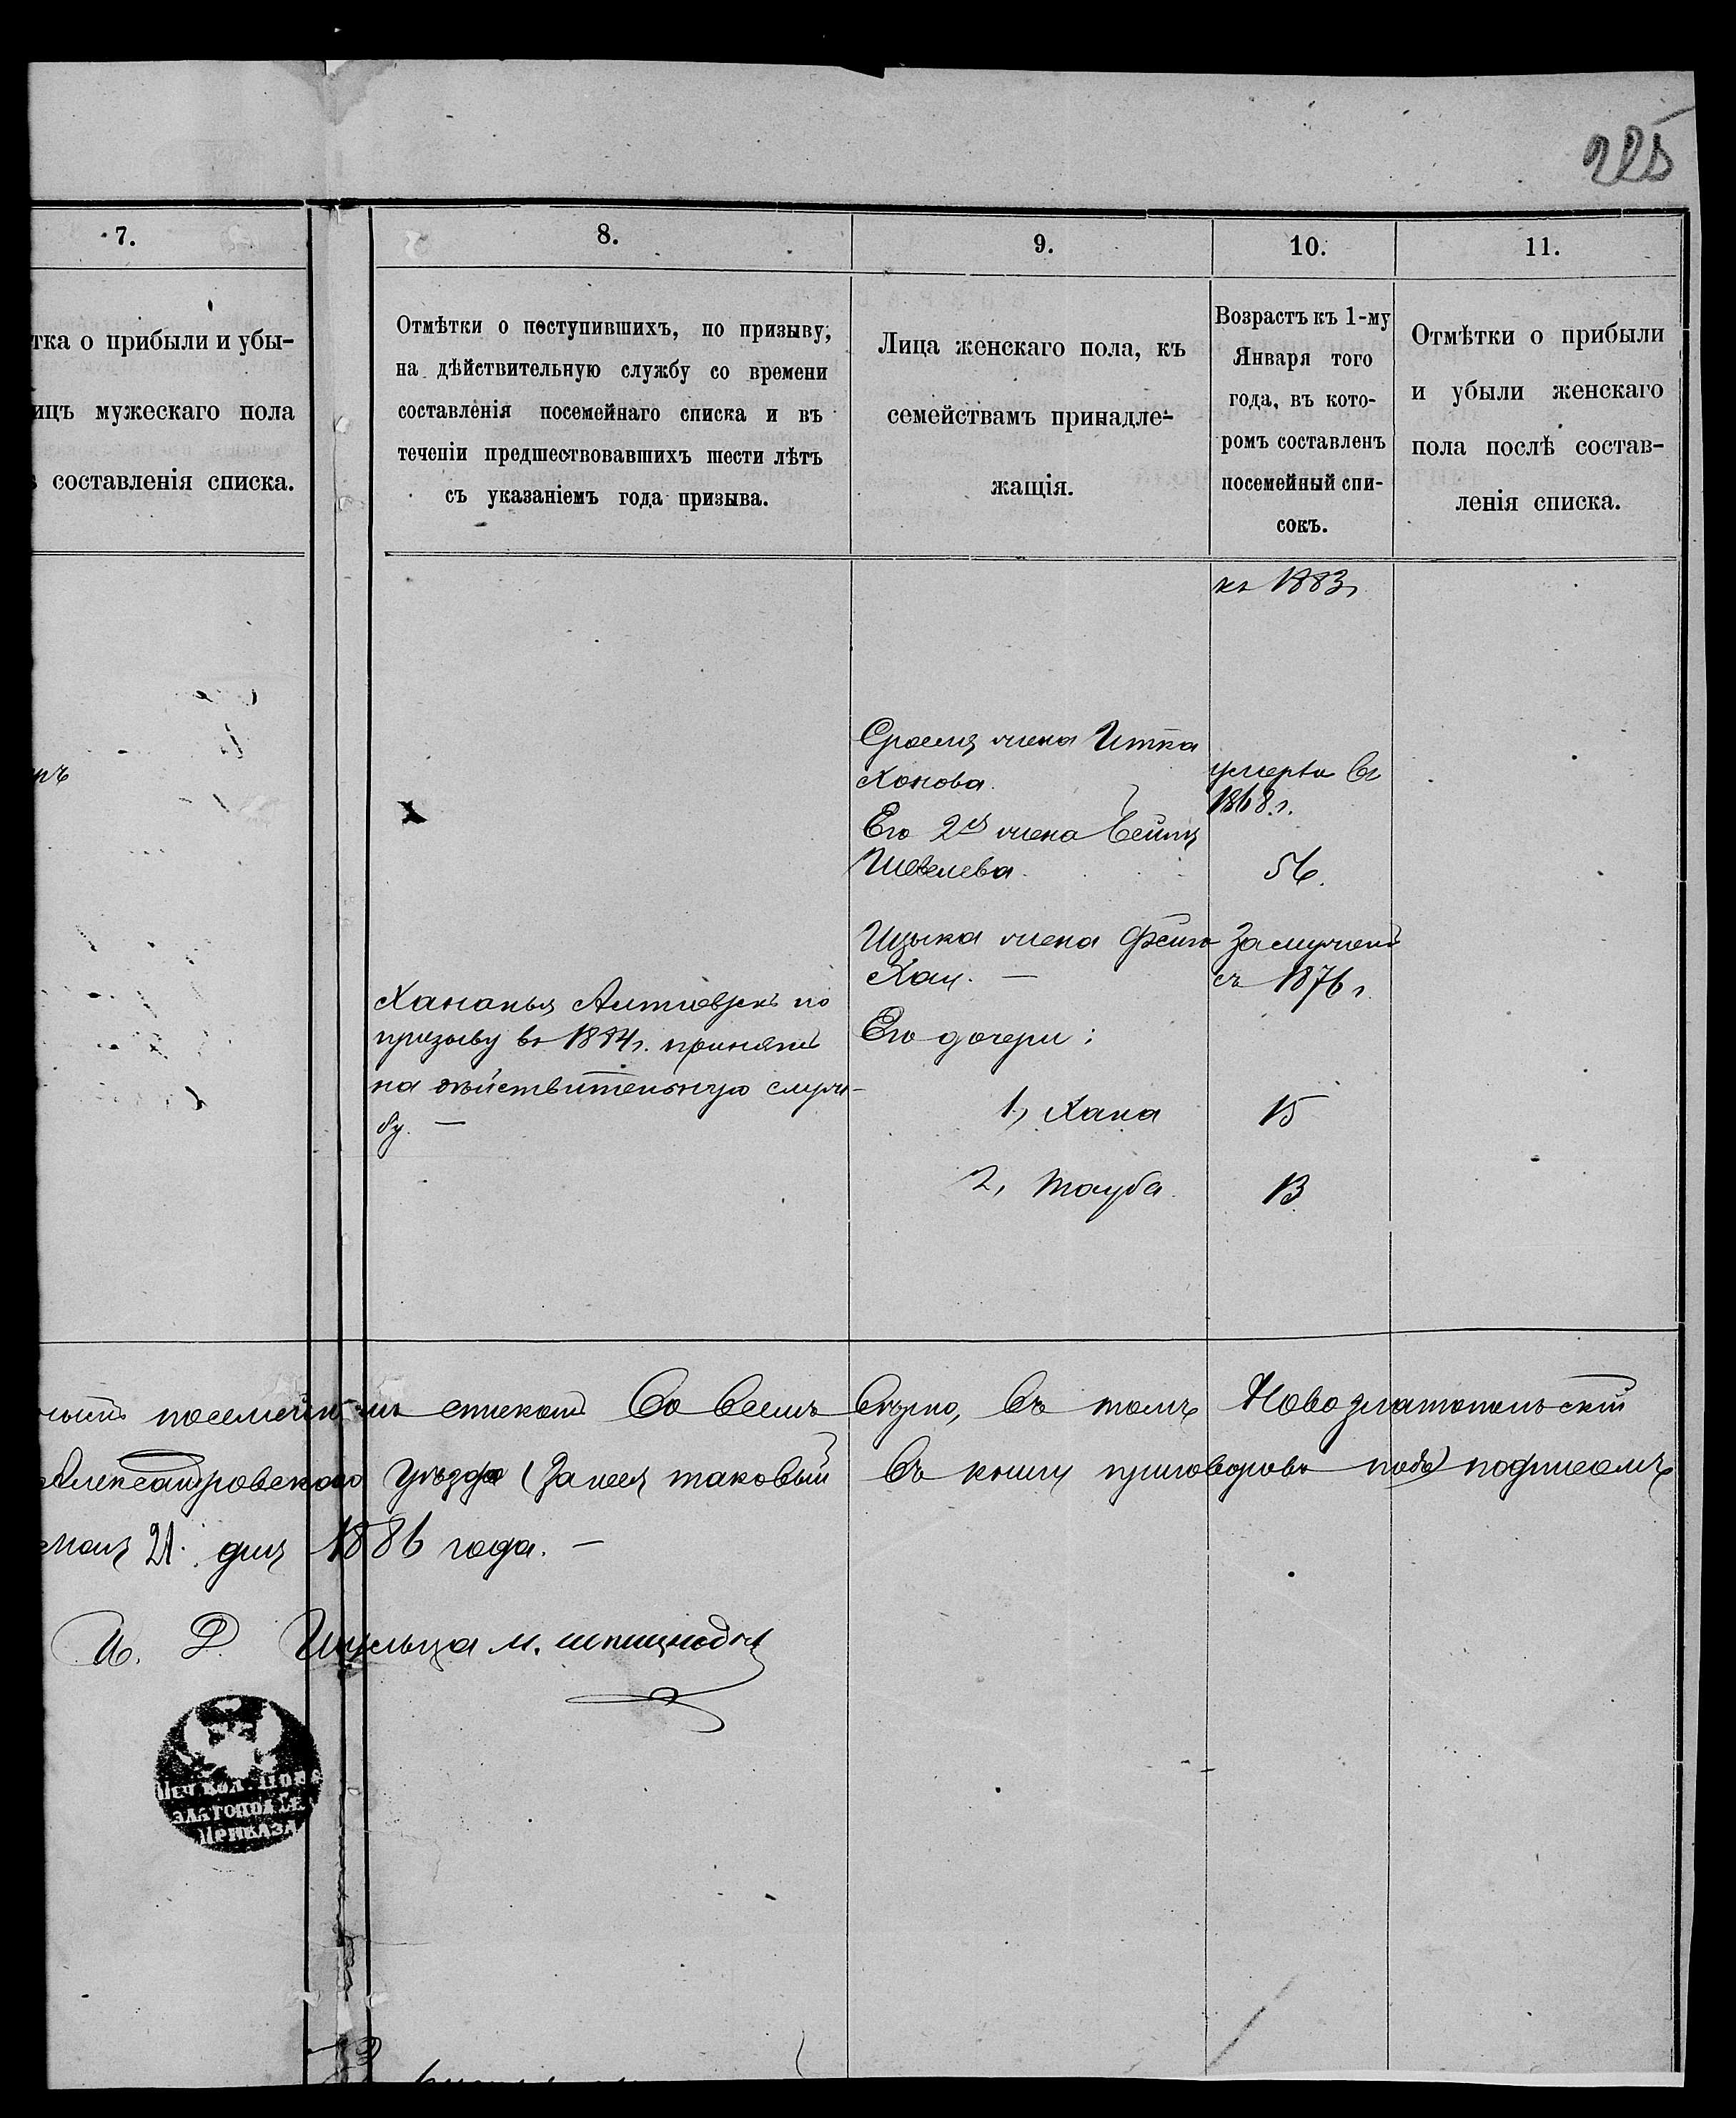 225
7.
8.
9.
10.
11.
тка о прибыли и убы-
ицъ мужескаго пола
составленія списка.
Отмѣтки о поступившихъ, по призыву,
на дѣйствительную службу со времени
составленія посемейнаго списка и въ
теченіи предшествовавшихъ шести лѣтъ
съ указаніемъ года призыва.
Лица женскаго пола, къ
семействамъ принадле-
жащія.
Возрастъ къ 1-му
Января того
года, въ кото-
ромъ составленъ
посемейный спи-
сокъ.
Отмѣтки о прибыли
и убыли женскаго
пола послѣ состав-
ленія списка.
къ 1883г
Сроеля жена Итка
Хонова.
умерла въ
1868г.
Его 2я жена Бейля
Шевелева.
56.
Ицыка жена Фейга
Хаи. —
Замужемъ
съ 1876г.
Хананья по
призыву въ 1884г. принятъ
на дѣйствительную служ-
бу. —
Его дочери:
1, Хана
15
2, Тауба
13
посемейнымъ спискомъ во всемъ вѣрно, въ томъ Новозлатопольскій
Александровскаго уѣзда (Занеся таковый въ книгу приговоровъ подъ) подписомъ
21 дня 1886 года. —
И. Д. М.
Печ. Вол. Ново
златопол. Се
Приказа